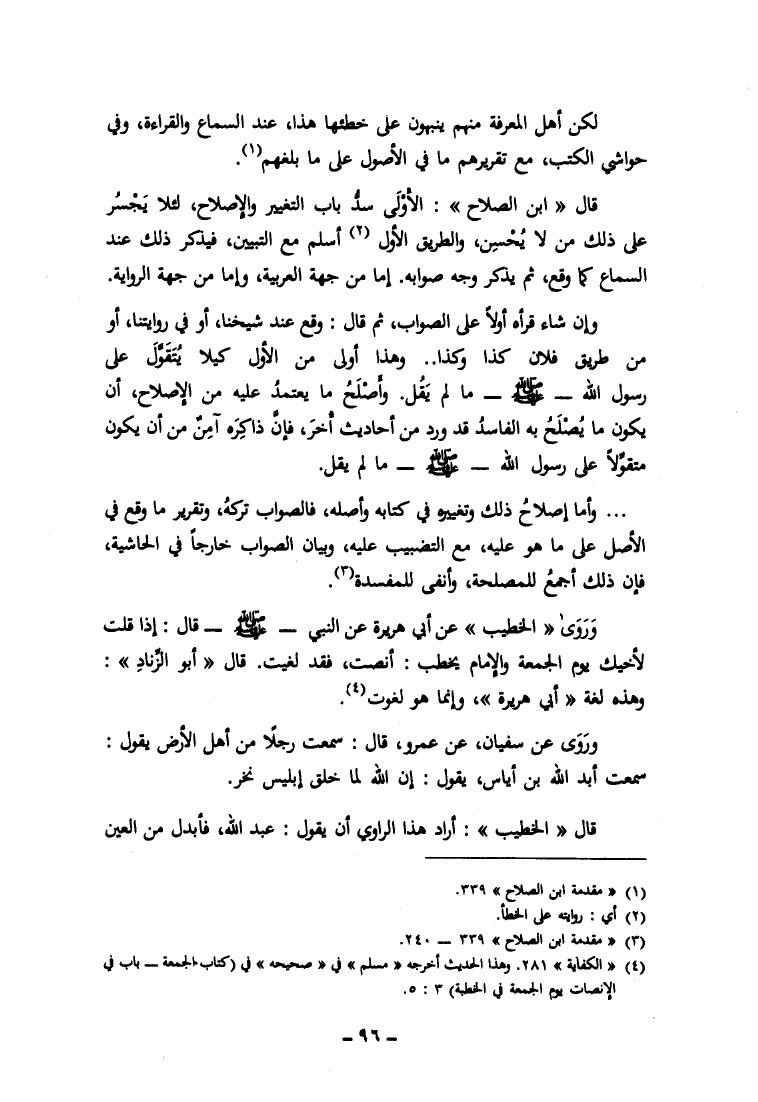 لكن أهل المعرفة منهم ينبهون على خطئها هذا، عند السماع والقراءة، وفي
حواشي الكتب، مع تقريرهم ما في الأصول على ما بلغهم(١).
قال « ابن الصلاح » : الأَوْلَى سدُّ باب التغيير والإصلاح، لئلا يَجْسُر
على ذلك من لا يُحْسِن، والطريق الأول (٢) أسلم مع التبيين، فيذكر ذلك عند
السماع كما وقع، ثم يذكر وجه صوابه. إما من جهة العربية، وإما من جهة الرواية.
وإن شاء قرأه أولاً على الصواب، ثم قال : وقع عند شيخنا، أو في روايتنا، أو
من طريق فلان كذا وكذا.. وهذا أولى من الأول كيلا يُتَقَوَّلَ على
رسول الله — ﷺ — ما لم يَقُل. وأَصْلَحُ ما يعتمدُ عليه من الإصلاح، أن
يكون ما يُصْلَحُ به الفاسدُ قد ورد من أحاديث أُخرَ، فإنَّ ذاكِرَه آمِنٌ من أن يكون
متقوِّلاً على رسول الله — ﷺ — ما لم يقل.
... وأما إصلاحُ ذلك وتغييره في كتابه وأصله، فالصواب تركهُ، وتقرير ما وقع في
الأصل على ما هو عليه، مع التضبيب عليه، وبيان الصواب خارجاً في الحاشية،
فإن ذلك أجمعُ للمصلحة، وأنفى للمفسدة(٣).
وَرَوَى « الخطيب » عن أبي هريرة عن النبي — ﷺ — قال : إذا قلت
لأخيك يوم الجمعة والإمام يخطب : أنصت، فقد لغيت. قال « أبو الزِّنادِ » :
وهذه لغة « أبي هريرة »، وإنما هو لغوت(٤).
ورَوَى عن سفيان، عن عمرو، قال : سمعت رجلًا من أهل الأرض يقول :
سمعت أبد الله بن أياس، يقول : إن الله لما خلق إبليس نخر.
قال « الخطيب » : أراد هذا الراوي أن يقول : عبد الله، فأبدل من العين
(١) « مقدمة ابن الصلاح » ٣٣٩.
(٢) أي : روايته على الخطأ.
(٣) « مقدمة ابن الصلاح » ٣٣٩ — ٢٤٠.
(٤) « الكفاية » ٢٨١. وهذا الحديث أخرجه « مسلم » في « صحيحه » في (كتاب الجمعة — باب في
الإنصات يوم الجمعة في الخطبة) ٣ : ٥.
– ٩٦ –